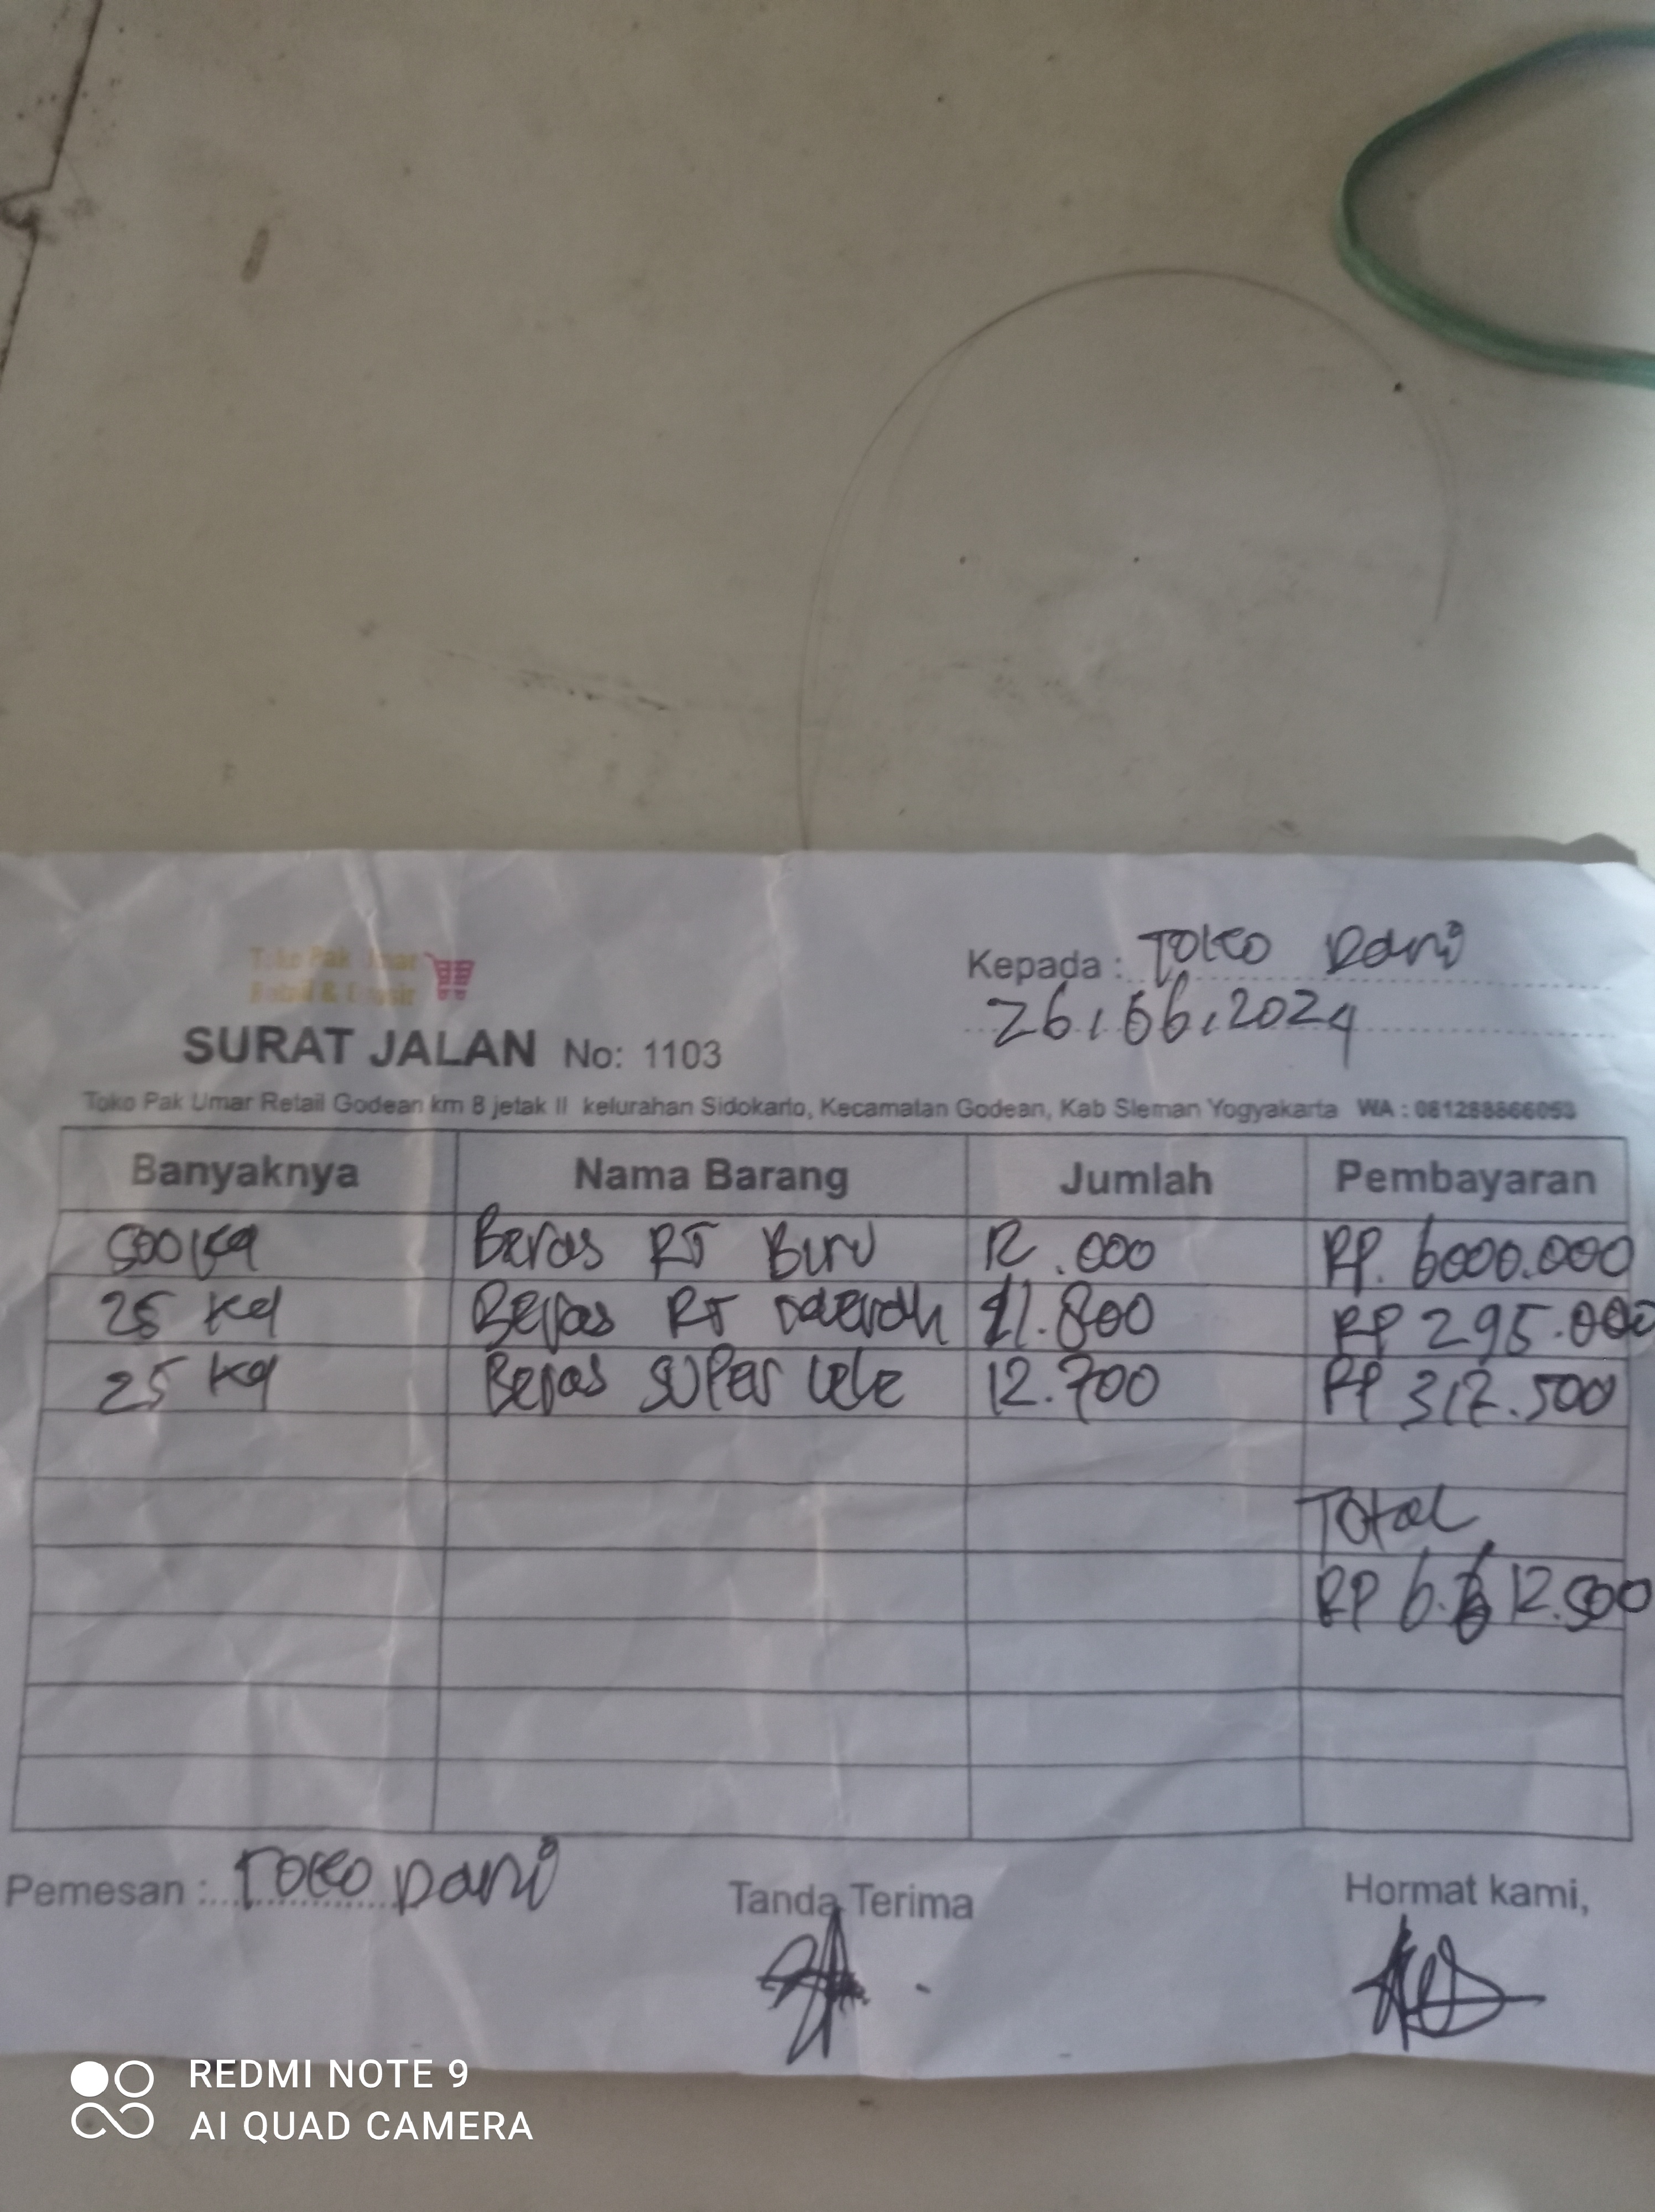 Toko Pak Umar
Retail & Grosir
Kepada : Toko Dani
26,06,2024
SURAT JALAN No: 1103
Toko Pak Umar Retail Godean km 8 jetak II kelurahan Sidokarto, Kecamatan Godean, Kab Sleman Yogyakarta WA : 081288866053
Banyaknya Nama Barang Jumlah Pembayaran
500 kg Beras RJ Biru 12.000 RP. 6000.000
25 kg Beras RJ Daerah 11.800 RP 295.000
25 kg Beras Super Lele 12.700 RP 317.500
Total
RP 6.612.500
Pemesan : Toko Dani
Tanda Terima
Hormat kami,
REDMI NOTE 9
AI QUAD CAMERA